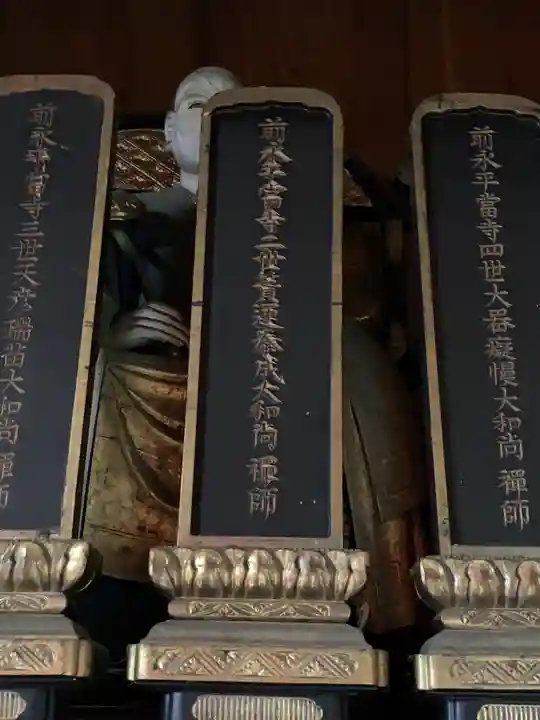 前永平當寺四世大器癡慢大和尚禪師
前永平當寺二世實運泰成大和尚禪師
前永平當寺三世天彦瑞苗大和尚禪師